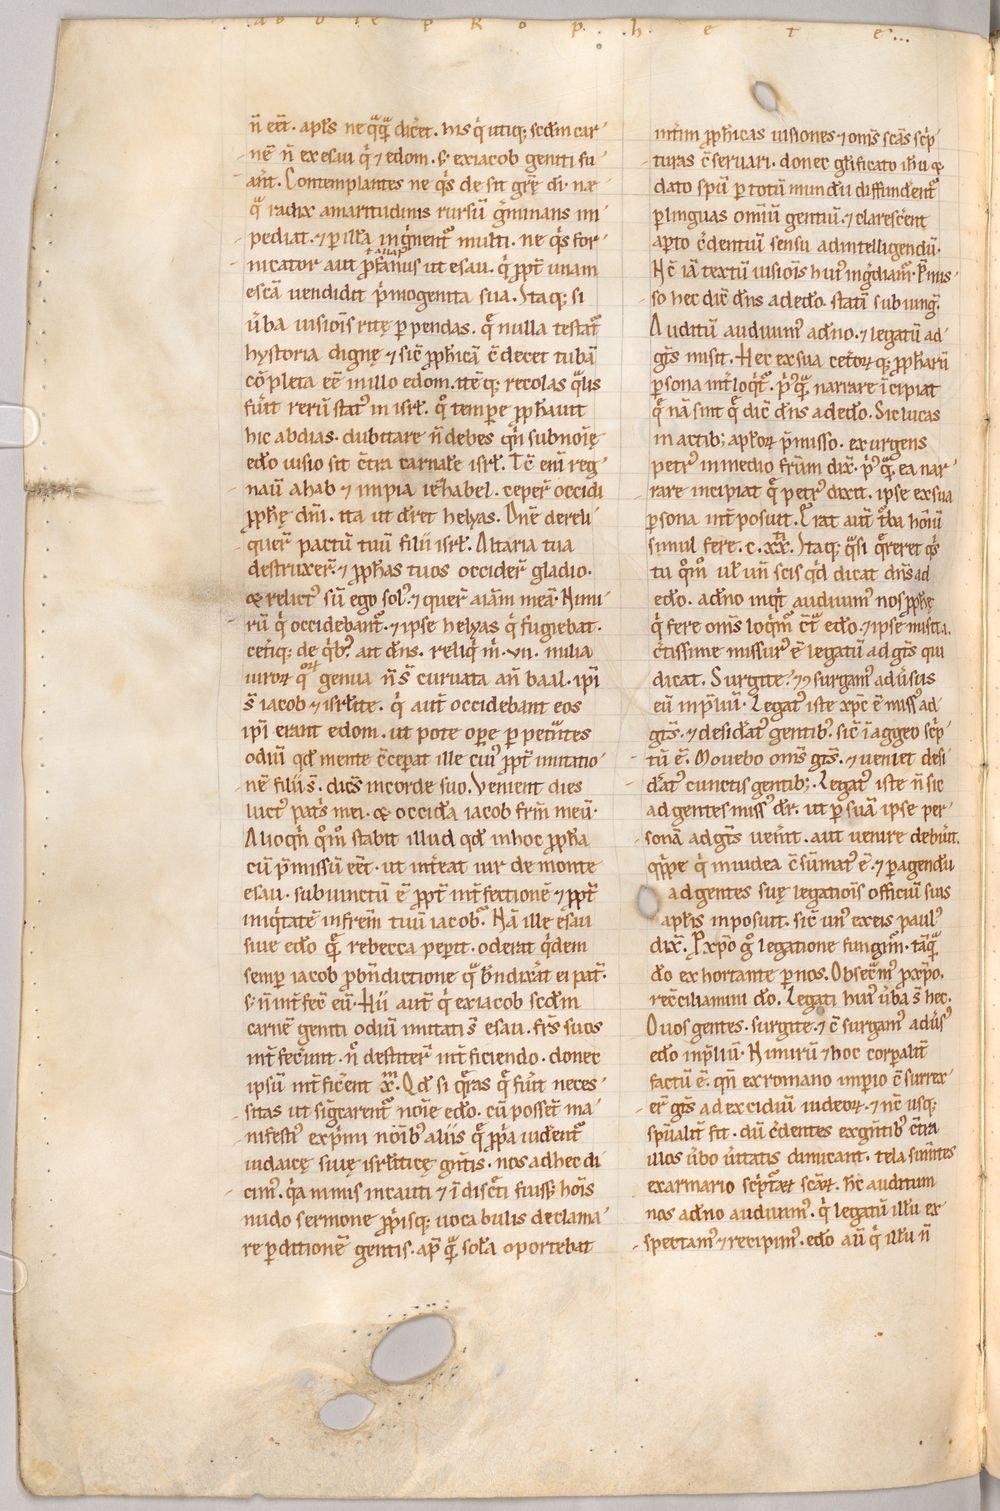 a b d i e p R o p. .h. e t e...
n̄ eēt. apl̄s ne qͣqͣ diceˀt. his qͥ utiq; scd̄m car
nē n̄ ex esau qͥ ⁊ edom. sꝫ ex iacob geniti fu
an̄t. Contemplantes ne qͥs desit grē dī. ne
qͣ radix amaritudinis rursū gͤminans im
pediat. ⁊ ꝑ illā inqͥnent᷑ multi. ne qͥs for
nicator aut ꝓfanus ut esau. qͥ ꝓpt̄ unam
escā uendidit pͥmogenita sua. Itaq; si
ūba uisiōis ritę perpendas. qͦ nulla testat᷑
hystoria dignę ⁊ sic̄ ꝓph̄icā c̄decet tubā
cōpleta eē in illo edom. itēq; recolas qͣlis
fuīt rerū statꝰ in isrl̄. qͦ tempe ꝓph̄auit
hic abdias. dubitare n̄ debes qͥn sub noīę
edo uisio sit c̄tra carnale isrl̄. Tc̄ enī reg
nauī ahab ⁊ impia iezhabel. ceper̄ occidi
ꝓph̄ę dn̄i. ita ut dīret helyas. Dn̄e dereli
quer̄ pactū tuū filii isrl̄. Altaria tua
destruxer̄. ⁊ ꝓph̄as tuos occider̄ gladio.
& relictꝰ sū ego solꝰ. ⁊ quer̄ aīam meā. Nimi
rū qͥ occidebant᷑. ⁊ ipse helyas qͥ fugiebat.
cet̄iq; de qͥbꝰ ait dn̄s. reliqͥ m̄. vii. milia
uiroꝝ qͦꝝ genua n̄ s̄ curuata an̄ baal. ip̄i
s̄ iacob ⁊ isrl̄ite. qͥ aut̄ occidebant eos
ip̄i erant edom. ut pote oꝑe ꝑpetrātes
odiū qd̄ mente c̄ceperat ille cuiꝰ ꝓpt̄ imitatio
nē filii s̄. dicēs in corde suo. Venient dies
luctꝰ pat̄s mei. & occidā iacob fr̄m meū.
Alioqͥn qͦm̊ stabit illud qd̄ in hoc ꝓph̄a
cū pͥmissū eēt. ut int̄eat uir de monte
esau. subiunctū ē ꝓpt̄ int̄fectionē ⁊ ꝓpt̄
iniqͥtatē in fr̄em tuū iacob. Nā ille esau
siue edō quē rebecca peꝑit. oderat qͥdem
semꝑ iacob ꝓ bn̄dictione qͣ bn̄dixāt ei pat̄.
sꝫ n̄ int̄fec̄ eū. Hii aut̄ qͥ ex iacob scd̄m
carnē geniti odiū imitati s̄ esau. fr̄s suos
int̄fecert̄. n̄ destiter̄ int̄ficiendo. donec
ipsū int̄ficērent xp̄m. Qd̄ si qͥras qͤ fuīt neces
sitas ut sig̃carent᷑ noīe edō. cū posset ma
nifestiꝰ expͥmi noībꝰ aliis qͤ ꝓpͥa uident᷑
iudaicę siuę isrl̄iticę gn̄tis. nos ad hec di
cimꝰ. qͥa nimis incauti ⁊ īdiscͥti fuissꝫ hoīs
nudo sermone ꝓpͥisq; uocabulis declama
re ꝑditionē gentis. ap̄ quā solā oportebat
int̄im ꝓph̄icas uisiones ⁊ om̄s scās scͥp
turas c̄seruari. donec gl̄ificato ih̄u &
dato sp̄u per totū mundū diffundent᷑
ꝑ linguas om̄iū gentiū. ⁊ claresc̄ent
apto cͥdentiū sensu ad intelligendū.
Nc̄ iā textū uisiōis huiꝰ ingͥdiamᷓ. Pͥmis
so hec dic̄ dn̄s ad edō. statī subiungͥ.
Auditū audiuimꝰ a dn̄o. ⁊ legatū ad
gn̄ts misit. Hec ex sua cet̄oꝝq; ꝓph̄arū
ꝑsona int̄loqͥt᷑. pͥꝰqͣ narrare īcipiat
qͤ nā sint qͤ dic̄ dn̄s ad edō. Sic lucas
in actib; apl̄oꝝ pͥmisso. exurgens
petrꝰ in medio fr̄um dix̄. pͥꝰqͣ ea nar
rare incipiat qͤ petrꝰ dixit. ipse ex sua
ꝑsona int̄posuit. Erat aut̄ t̄ba hoīnū
simul fere. c. xx. Itaq; qͣsi qͥreret qͥs
tu qͦm̊ ul̄ un̄ scis qͥd dicat dn̄s ad
edō. a dn̄o inqͥt audiuimꝰ nos ꝓph̄ę
qͥ fere om̄s loqͥmᷓ c̄tͣ edō. ⁊ ipse
c̄tissime missurꝰ ē legatū ad gn̄ts qui
dicat. Surgite. ⁊ ↄsurgamꝰ aduͥsus
eū in pͥliū. Legatꝰ iste xp̄c ē missꝰ ad
gn̄ts. ⁊ desidͣatꝰ gentibꝰ. sic̄ ī aggeo scͥp
tū ē. Mouebo om̄s gn̄ts. ⁊ ueniet desi
dͣatꝰ cunctis gentib;. Legatꝰ iste n̄ sic
ad gentes missꝰ dr̄. ut ꝑ suā ipse per
sonā ad gn̄ts uenīt. aut uenire debuīt.
qͥppe qͥ in iudea c̄sūmatꝰ ē. ⁊ peragendū
ad gentes suę legationis officiū suis
apl̄is inposuit. sic̄ unꝰ ex eis paulꝰ
dix̄. Pro xp̄o gͦ legatione fungimᷓ. tāqͣ
dō exhortante ꝑ nos. Obsecͣmꝰ ꝓ xp̄o.
rec̄ciliamini dō. Legati huiꝰ ūba s̄ hec.
O uos gentes. surgite. ⁊ c̄surgamꝰ aduͥsꝰ
edō in pͥliū. Nimirū ⁊ hoc corꝑalit̄
factū ē. qn̄ ex romano imperio c̄surrex
er̄ gn̄ts ad excidiū iudeoꝝ. ⁊ nc̄ usq;
sp̄ualit̄ fit. dū cͥdentes ex gn̄tibꝰ c̄tra
illos ūbo ūitatis dimicant. tela sum̄ites
ex armario scͥptaꝝ scāꝝ. Hc̄ auditum
nos a dn̄o audiuimꝰ. qͥ legatū illū ex
spectamꝰ ⁊ recipimꝰ. edō aū qͥ illū n̄